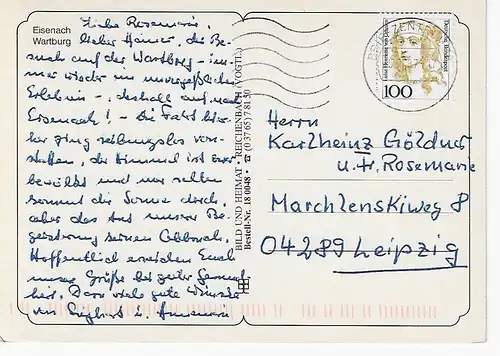 Eisenach
Wartburg
Liebe Rosemarie,
lieber Heiner, der Be-
such auf der Wartburg – im-
mer wieder ein unvergeßliches
Erlebnis –, deshalb auf nach
Eisenach! – Die Fahrt hier-
her ging reibungslos von-
statten, der Himmel ist zwar
bewölkt und nur selten
kommt die Sonne durch,
aber das tut unserer Be-
geisterung keinen Abbruch.
Hoffentlich erreichen Euch
unsere Grüße bei guter Gesund-
heit. Ganz viele gute Wünsche
von
BILD UND HEIMAT · REICHENBACH (VOGTL)
Bestell-Nr. 18 0048 · ☎ (0 37 65) 7 81 50
BRIEFZENTRUM
Deutsche Bundespost
100
Herrn
Karlheinz Göldner
u. Fr. Rosemarie
Marchlenskiweg 8
04289 Leipzig